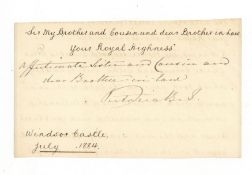 Sir My Brother and Cousin and dear Brother in law
Your Royal Highness'
Affectionate Sister and Cousin and
dear Brother-in-law
Victoria R. I.
Windsor Castle,
July 1884.